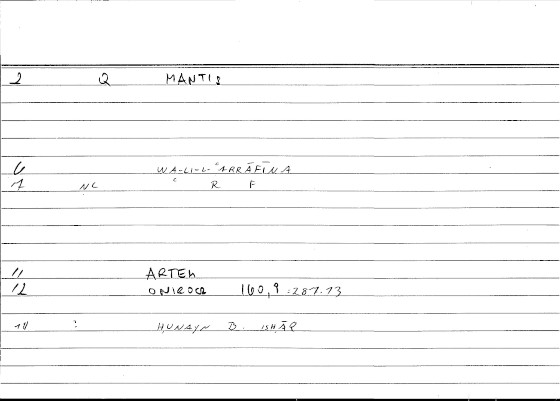 2 Q MANTIS
6 WA-LI-L-ʿARRĀFĪNA
7 NC ʿ R F
11 ARTEM
12 ONIROCR 160,9 :287.13
14 : ḤUNAYN B. ISḤĀQ